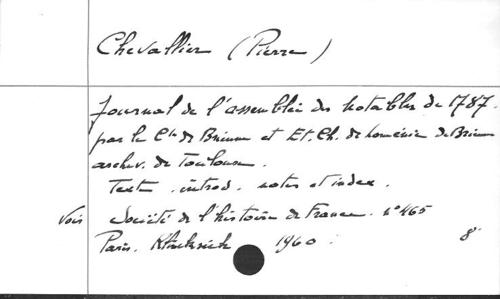 Chevallier (Pierre)
Journal de l'assemblée des Notables de 1787.
par le Cte de Brienne et Et. Ch. de Loménie de Brienne
archev. de Toulouse.
Texte, introd. notes et index.
Voir Société de l'histoire de France. n° 465
Paris. Klincksieck 1960. 8°